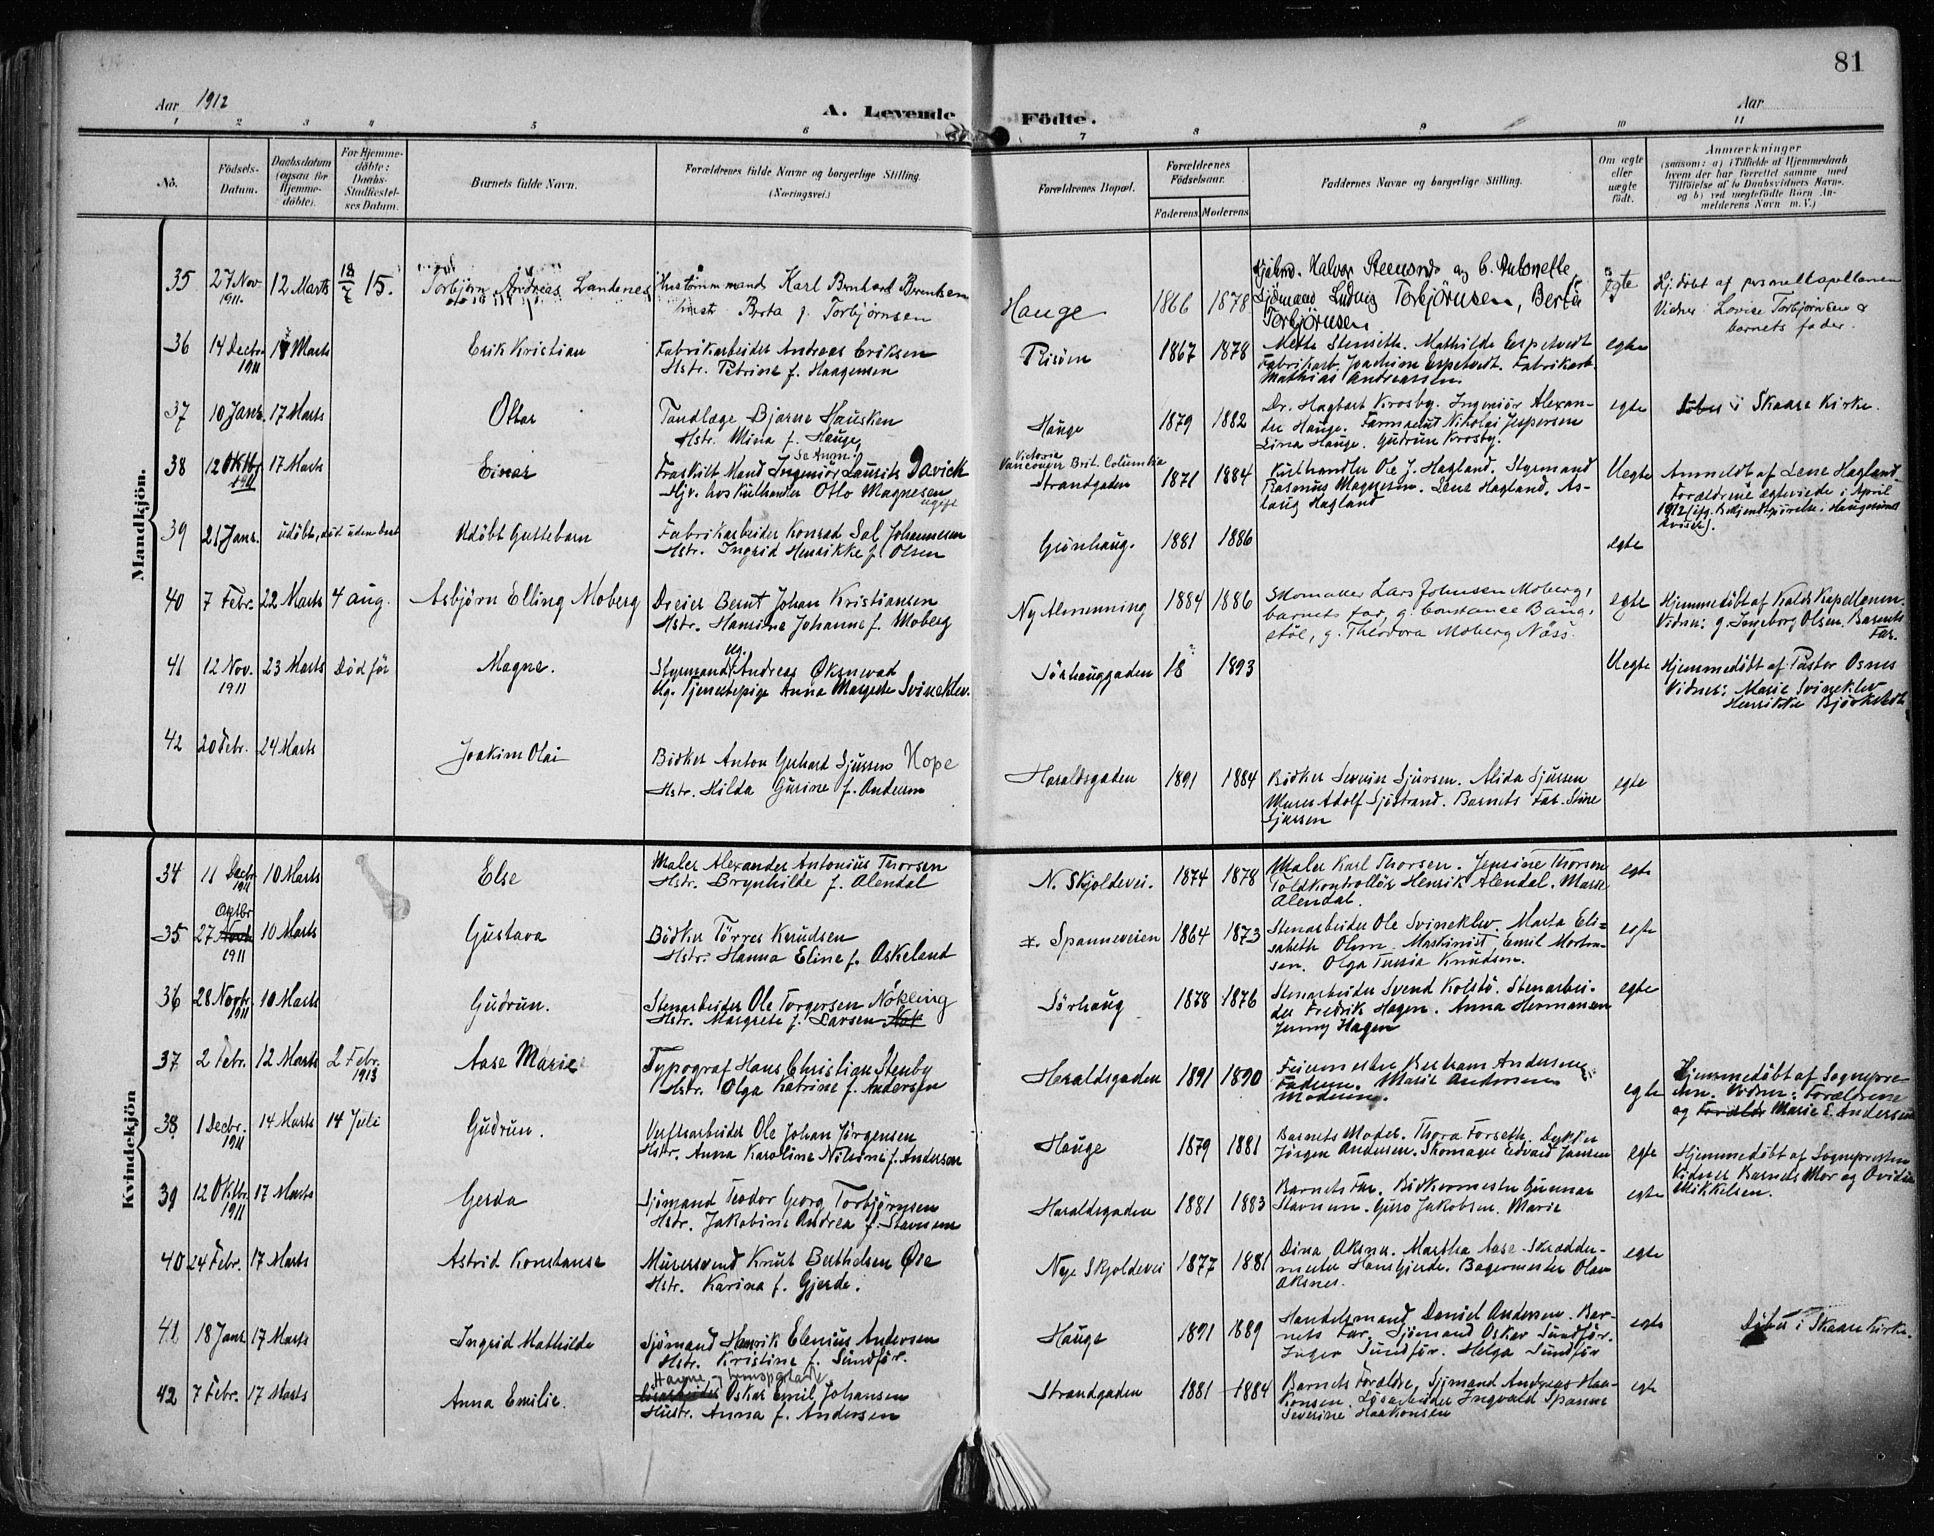 81
Aar 1912
A. Levende Födte.
Aar
1 2 3 4 5 6 7 8 9 10 11
No.
Födsels-Datum.
Daabsdatum (ogsaa for Hjemmedöbte).
For Hjemmedöbte: Daabs-Stadfæstelses Datum.
Barnets fulde Navn.
Forældrenes fulde Navne og borgerlige Stilling. (Næringsvei.)
Forældrenes Bopæl.
Forældrenes Födselsaar.
Faderens Moderens
Faddernes Navne og borgerlige Stilling.
Om ægte eller uægte födt.
Anmærkninger (saasom: a) i Tilfælde af Hjemmedaab hvem der har forrettet samme med Tilföielse af to Daabsvidners Navne, og b) ved uægtefödte Börn Anmelderens Navn m. V.)
Mandkjön.
35 27 Nov 1911. 12 Marts 18/7 15. Torbjörn Andreas Landenes
Karl Bernhard
Berta f. Torbjørnsen
Hauge 1866 1878
Halvor og C. Antonette,
Sjömand Ludvig Torbjörnsen, Berta
Torbjörnsen
egte
Hj.döbt af personelkapellanen
Vidner: Lovise Torbjörnsen &
barnets fader.
36 14 Decbr 1911 Marts Erik Kristian
Fabrikarbeider Andreas Eriksen
Hstr. Petrine f. Haagensen
1867 1878
Mette Mathilde Espetvedt
Fabrikarb. Joachim Espetvedt. Fabrikarb.
Mathias Andreassen
egte
37 10 Janr. 17 Marts Ottar
Tandlæge Bjarne Hausken
Hstr. Mina f. Hauge
Hauge 1879 1882
Dr. Hagbart Krosby. Ingeniör Alexan-
der Hauge. Farmaceut Nikolai Jespersen
Lina Hauge. Gudrun Krosby.
egte
Döbt i Skaare Kirke.
38 12 Oktbr 1911 17 Marts Einar
Se Anm.
Fraskilt Mand Ingeniör Laurits Davick
Otto Magnesen
ugift
Victoria
Vancouver Brit. Columbia
Strandgaden
1871 1884
Kulhandler Ole J. Hagland. Styrmand
Rasmus Magnesen. Lene Hagland. As-
laug Hagland
Uegte
Anmeldt af Lene Hagland.
Forældrene egteviede i April
1912
39 21 Janr. udöbt, död uden daab Udöbt Guttebarn
Fabrikarbeider Konrad Sal Johannesen
Hstr. Ingrid Henrikke f. Olsen
Grönhaug. 1881 1886
egte
40 7 Febr. 22 Marts 4 aug. Asbjörn Elling Moberg
Dreier Bernt Johan Kristiansen
Hstr. Hansine Johanne f. Moberg
Ny Almenning 1884 1886
Skomaker Lars Johnsen Moberg,
barnets far, g. Constance Baug,
stöl, g. Theodora Moberg Näss.
egte
Hjemmedöbt af Kaldskapellanen.
Vidner: g. Ingeborg Olsen. Barnets
Far.
41 12 Nov. 1911 23 Marts Död för Magne.
ug.
Styrmand Andreas Øksnevad
Ug. Tjenestepige Anna Margrete Svineklev.
Sörhauggaden 18 1893
Uegte
Hjemmedöbt af Pastor Osnes
Vidner: Marie Svineklev
Henrikke Björkelvedt
42 20 Febr. 24 Marts Joakim Olai
Bödker Anton Gerhard Sjursen Hope
Hstr. Hilda Gurine f. Andersen
Haraldsgaden 1891 1884
Bödker Severin Sjursen. Alida Sjursen
Murer Adolf Sjöstrand. Barnets Far. Stine
Sjursen
egte
Kvindekjön
34 11 Decbr 1911 10 Marts Else
Maler Alexander Antonius Thorsen
Hstr. Brynhilde f. Alendal
N. Skjoldevei. 1874 1878
Maler Karl Thorsen. Jensine Thorsen
Toldkontrollör Henrik Alendal. Marie
Alendal.
egte
35 27 Oktbr Novbr 1911 10 Marts Gustava
Bödker Törres Knudsen
Hstr. Hanna Eline f. Askeland
Spanneveien 1864 1873
Stenarbeider Ole Svineklev. Marta Eli=
sabeth Olsen. Maskinist Emil Morten-
sen. Olga Tresia Knudsen.
egte
36 28 Novbr. 1911 10 Marts Gudrun.
Stenarbeider Ole Torgersen Nökling
Hstr. Margrete f. Larsen Nök
Sörhaug 1878 1876
Stenarbeider Svend Kolstö. Stenarbei-
der Fredrik Hagen. Anna Hermansen
Jenny Hagen
egte
37 2 Febr. 12 Marts 2 Febr. 1913 Aase Marie
Typograf Hans Christian Stenby
Hstr. Olga Katrine f. Andersen
Haraldsgaden 1891 1890
Feiermester Bertrans Andersen
Faderen. Marie Andersen
Moderen.
egte
Hjemmedöbt af Sognepre-
sten. Vidner: Forældrene
og Marie E. Andersen
38 1 Decbr. 1911 14 Marts 14 Juli Gudrun.
Verftsarbeider Ole Johan Jörgensen
Hstr. Anna Karoline Nilsine f. Andersen
Hauge 1879 1881
Barnets Moder. Thora Forseth. Dykker
Jörgen Andersen. Skomager Edvard Jansen
egte
Hjemmedöbt af Sognepresten
Vidner Barnets Mor og Ovidia
Mikkelsen.
39 12 Oktbr. 1911 17 Marts Gerda
Sjömand Teodor Georg Torbjörnsen
Hstr. Jakobine Andrea f. Stavnem
Haraldsgaden 1881 1883
Barnets Far. Bödkermester Gunnar
Stavnem. Guro Jakobsen. Marie
egte
40 24 Febr. 17 Marts Astrid Konstanse
Murersvend Knut Berthelsen Öie
Hstr. Karina f. Gjerde.
Nye Skjoldevei 1877 1881
Dina Aksnes. Martha Aase. Skrædder-
mester Hans Gjerde. Bagermester Olav
Aksnes.
egte
41 18 Janr. 17 Marts Ingrid Mathilde
Sjömand Henrik Elenius Andersen
Hstr. Kristine f. Sundför.
Hauge 1891 1889
Handelsmand Daniel Andersen. Bar-
nets Far. Sjömand Oskar Sundför.
Inger Sundför. Helga Sundför
egte
Döbt i Skaare Kirke.
42 7 Febr. 17 Marts Anna Emilie.
Lösarbeider Oskar Emil Johansen
Hustr. Anna f. Andersen
Strandgaden 1881 1884
Barnets Forældre, Sjömand Andreas Haa-
konsen. Lösarbeider Ingvald Spanne
Severine Haakonsen
egte